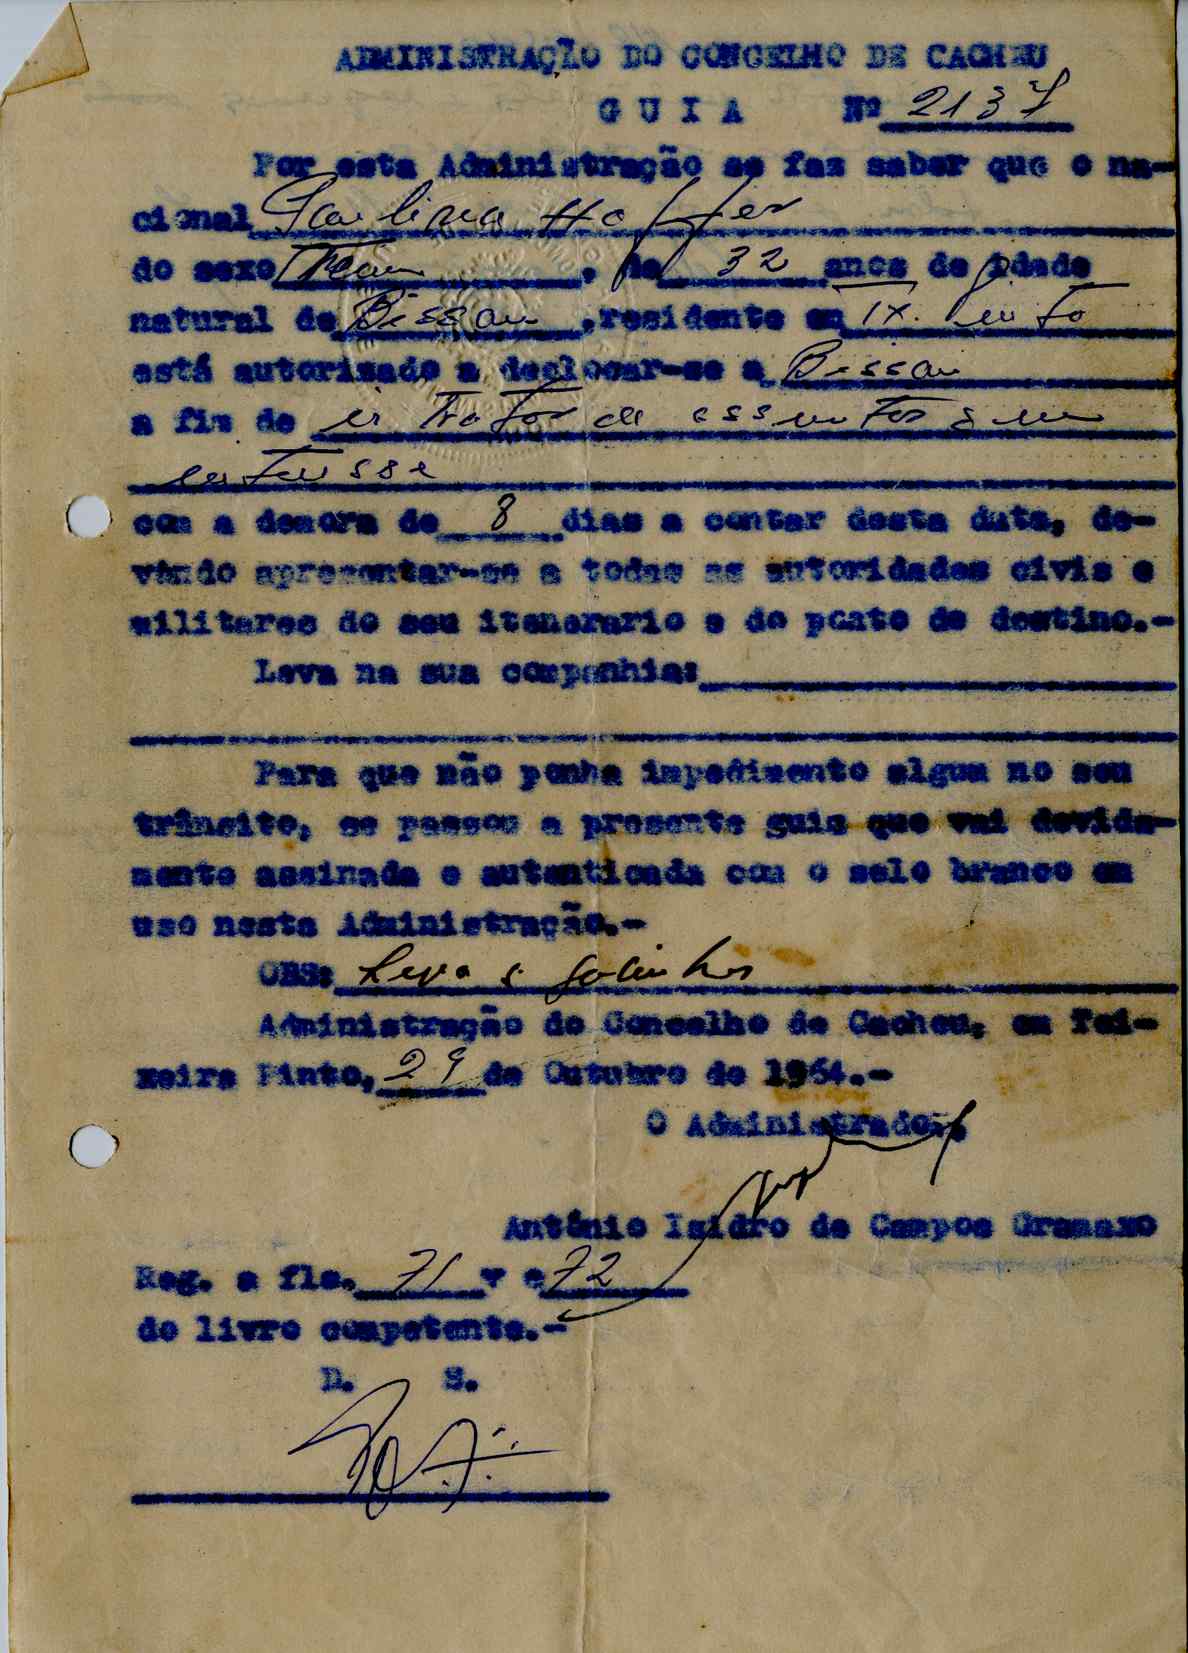 ADMINISTRAÇÃO DO CONCELHO DE CACHEU
GUIA Nº 2137
Por esta Administração se faz saber que o na-
cional Paulina Hoffer
do sexo Fem, de 32 anos de idade
natural de Bissau, residente em
está autorizado a deslocar-se a Bissau
a fim de ir tratar de assuntos s seu
interesse
com a demora de 8 dias a contar desta data, de-
vêndo apresentar-se a todas as autoridades civis e
militares do seu itenerario e do ponto de destino.-
Leva na sua companhia:
Para que não ponha impedimento algum no seu
trânsito, se passou a presente guia que vai devida-
mente assinada e autenticada com o selo branco em
uso nesta Administração.-
OBS: Leva 5 galinhas
Administração do Concelho de Cacheu, em Tei-
xeira Pinto, 29 de Outubro de 1964.-
O Administrador,
António Isidro de Campos Gramaxo
Reg. a fls. 71 v e 72
do livro competente.-
D. S.